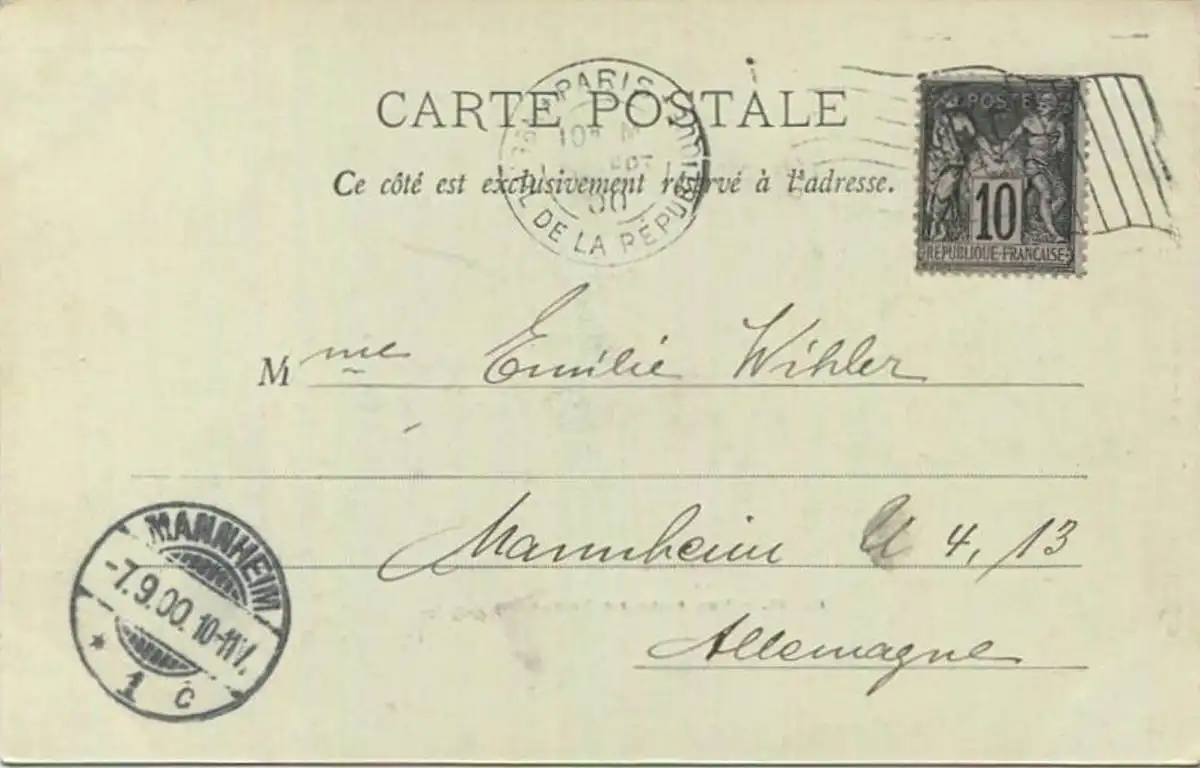 CARTE POSTALE
Ce côté est exclusivement réservé à l'adresse.
PARIS
DE LA RÉPUB
00
POSTE
10
RÉPUBLIQUE-FRANÇAISE
Mme Emilie Wihler
Mannheim U 4, 13
Allemagne
MANNHEIM
-7.9.00. 10-11V.
* 1 c